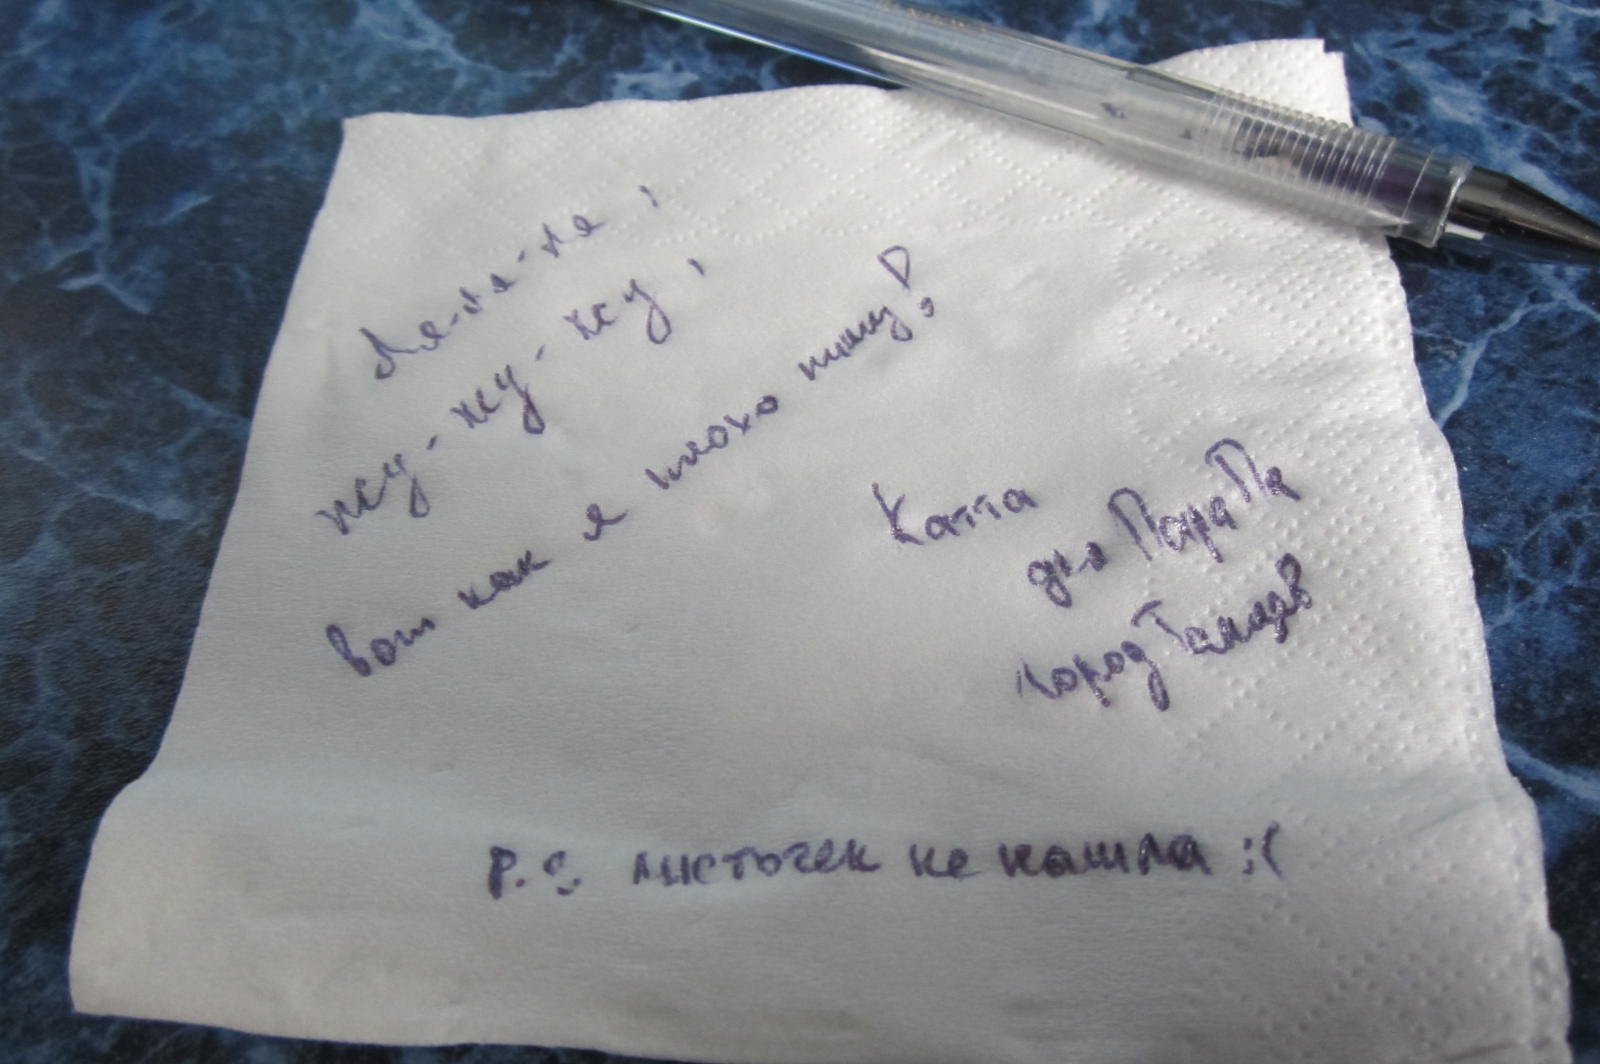 Ля-ля-ля,
жу-жу-жу,
вот как я плохо пишу!
Катта
для ПараПа
город Танцев
P.S. листочек не нашла :(